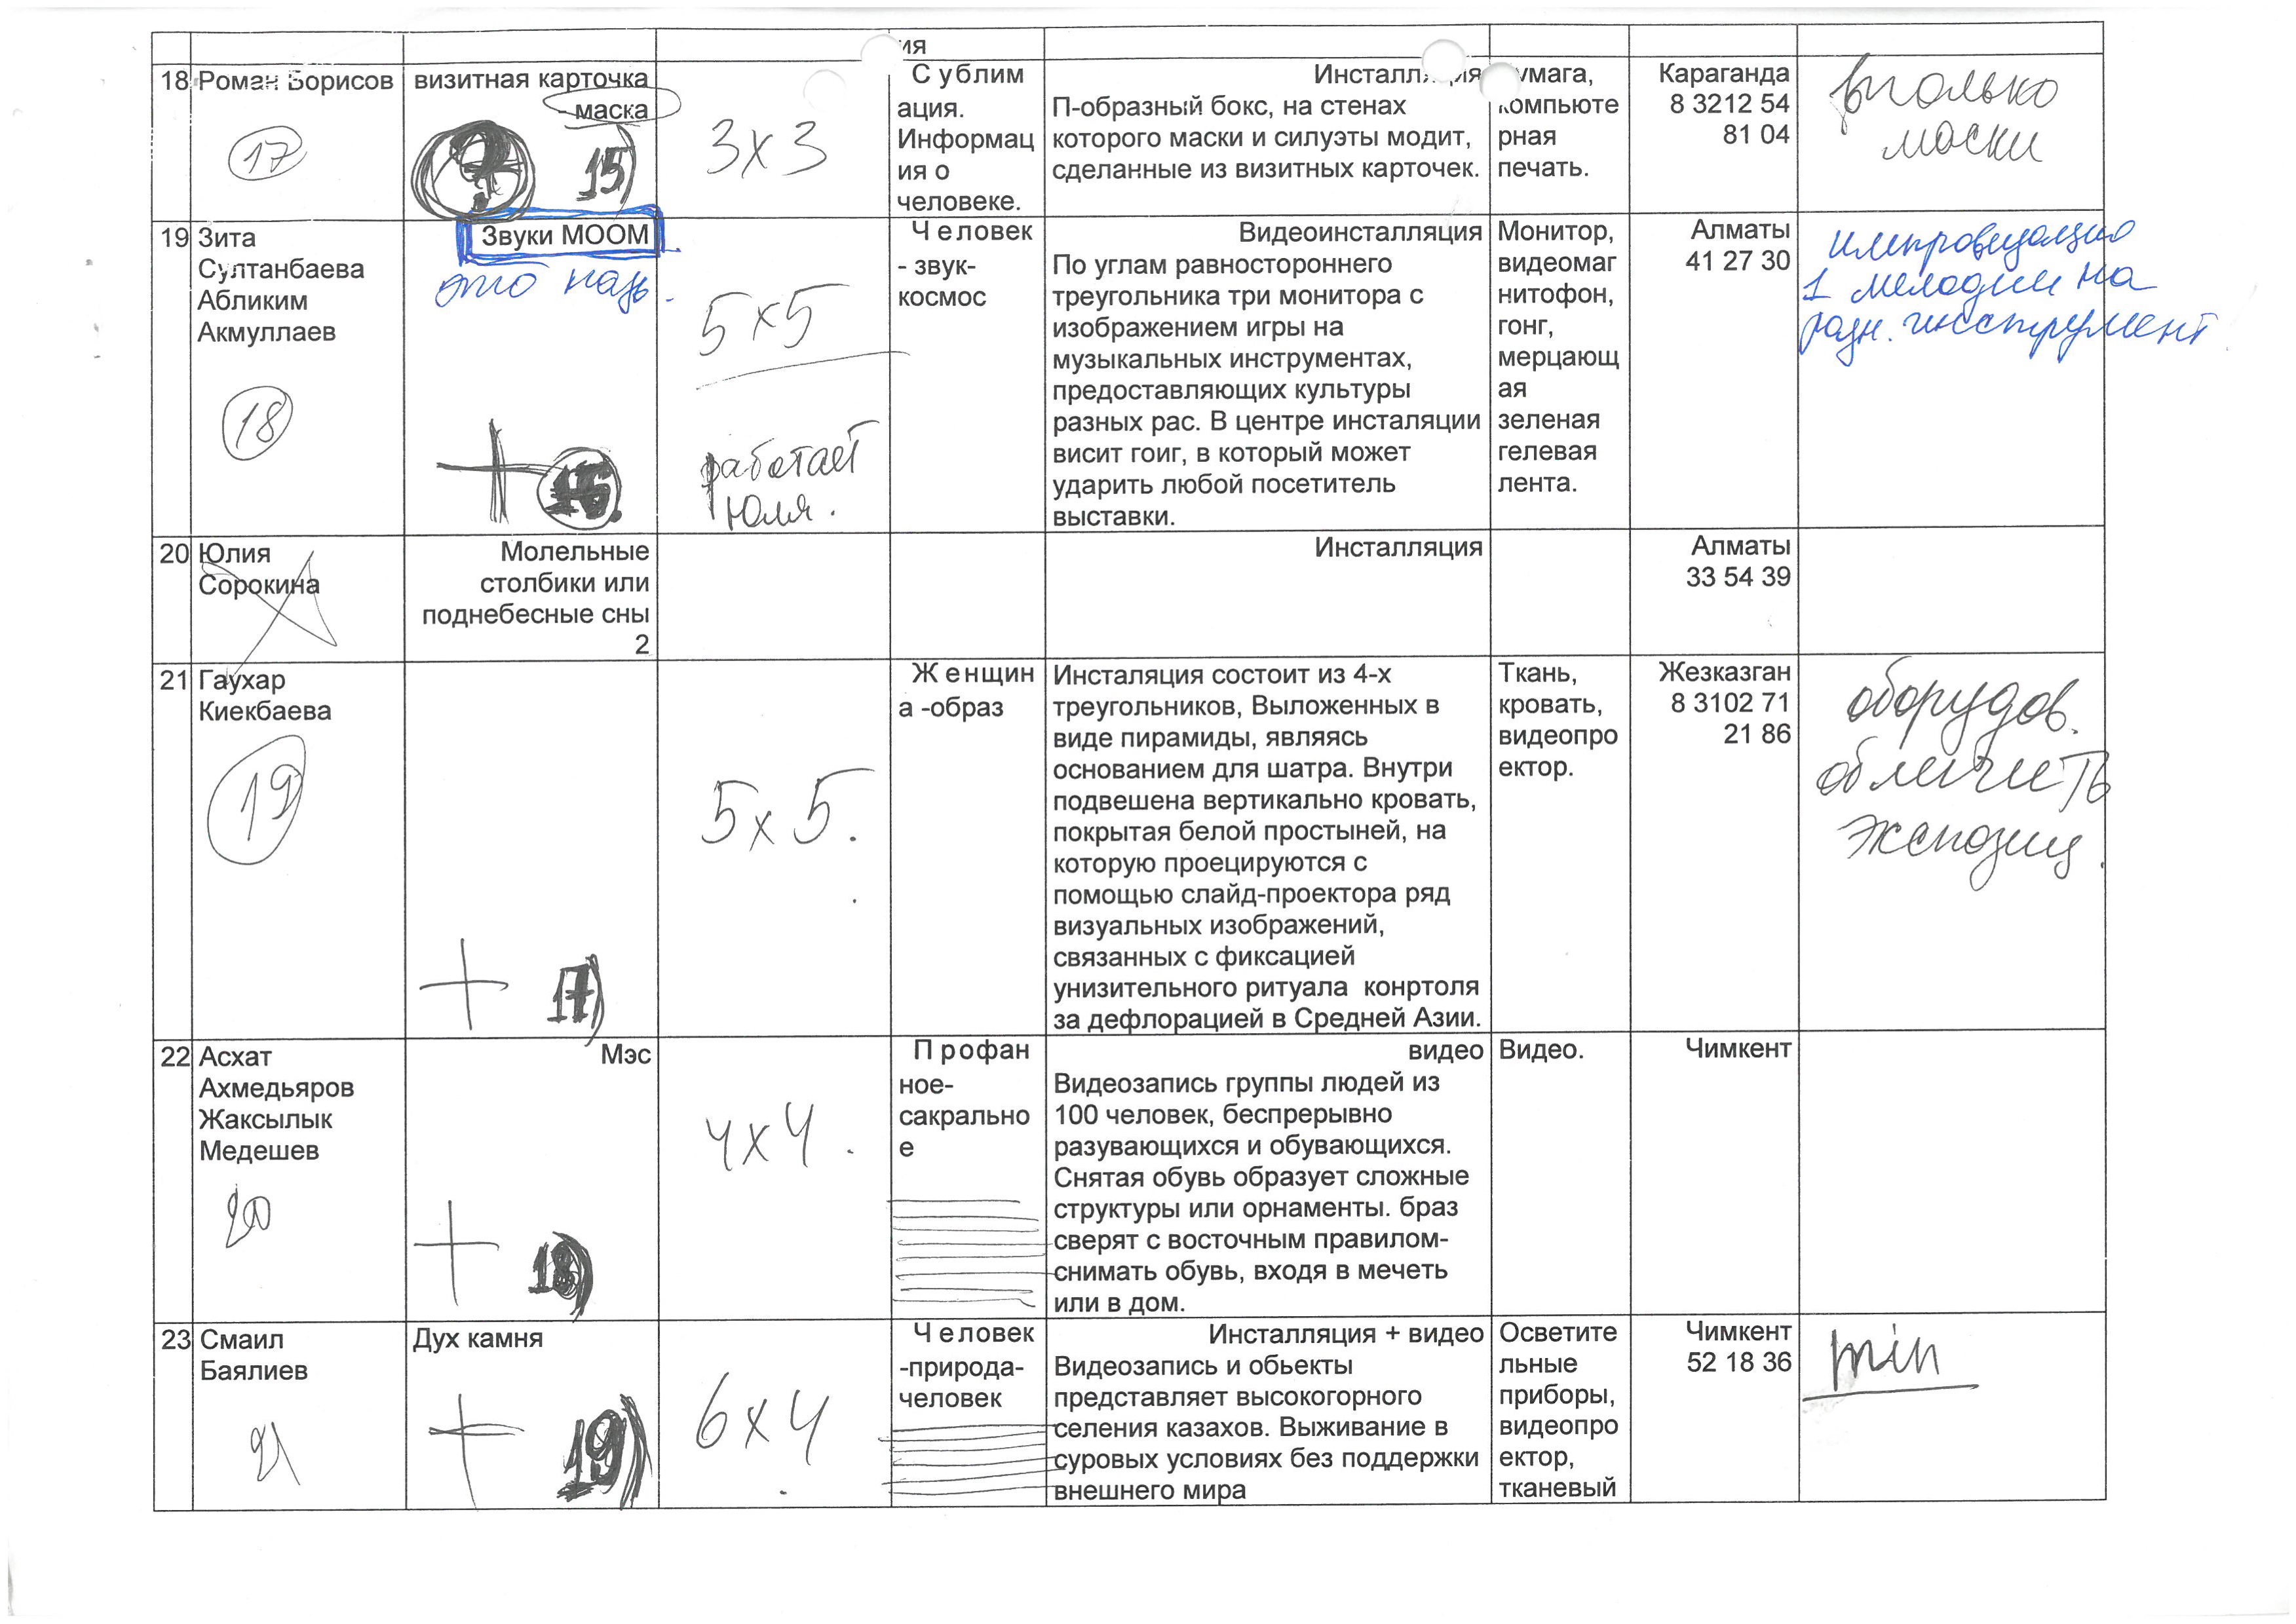 ия
18 Роман Борисов
17
визитная карточка
- маска
15)
3х3
Сублим
ация.
Информац
ия о
человеке.
Инсталляция
П-образный бокс, на стенах
которого маски и силуэты модит,
сделанные из визитных карточек.
бумага,
компьюте
рная
печать.
Караганда
8 3212 54
81 04
только
маски
19 Зита
Султанбаева
Абликим
Акмуллаев
18
Звуки МООМ
это назв.
+ 16
5х5
работает
Юля.
Человек
- звук-
космос
Видеоинсталляция
По углам равностороннего
треугольника три монитора с
изображением игры на
музыкальных инструментах,
предоставляющих культуры
разных рас. В центре инсталяции
висит гоиг, в который может
ударить любой посетитель
выставки.
Монитор,
видеомаг
нитофон,
гонг,
мерцающ
ая
зеленая
гелевая
лента.
Алматы
41 27 30
импровизацию
1 мелодии на
разн. инструмент
20 Юлия
Сорокина
Молельные
столбики или
поднебесные сны
2
Инсталляция
Алматы
33 54 39
21 Гаухар
Киекбаева
19
+ 17)
5х5.
Женщин
а -образ
Инсталяция состоит из 4-х
треугольников, Выложенных в
виде пирамиды, являясь
основанием для шатра. Внутри
подвешена вертикально кровать,
покрытая белой простыней, на
которую проецируются с
помощью слайд-проектора ряд
визуальных изображений,
связанных с фиксацией
унизительного ритуала конртоля
за дефлорацией в Средней Азии.
Ткань,
кровать,
видеопро
ектор.
Жезказган
8 3102 71
21 86
оборудов.
облегчить
экспозиц.
22 Асхат
Ахмедьяров
Жаксылык
Медешев
20
Мэс
+ 18)
4х4.
Профан
ное-
сакрально
е
видео
Видеозапись группы людей из
100 человек, беспрерывно
разувающихся и обувающихся.
Снятая обувь образует сложные
структуры или орнаменты. браз
сверят с восточным правилом-
снимать обувь, входя в мечеть
или в дом.
Видео.
Чимкент
23 Смаил
Баялиев
21
Дух камня
+ 19)
6х4
Человек
-природа-
человек
Инсталляция + видео
Видеозапись и обьекты
представляет высокогорного
селения казахов. Выживание в
суровых условиях без поддержки
внешнего мира
Осветите
льные
приборы,
видеопро
ектор,
тканевый
Чимкент
52 18 36
min